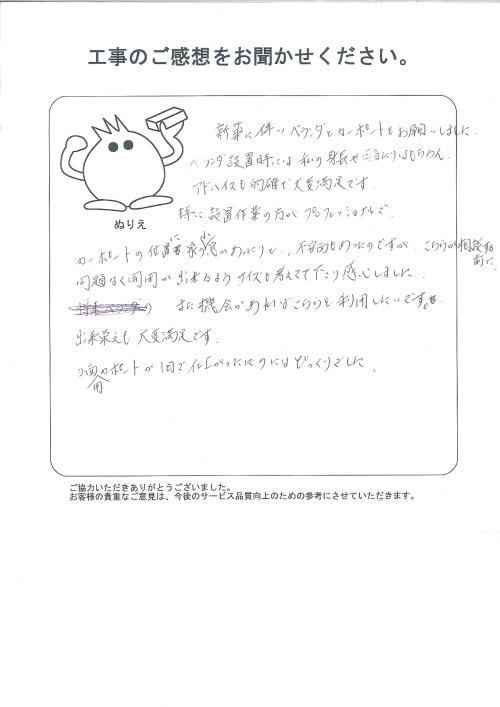 工事のご感想をお聞かせください。
新築に伴いベランダとカーポートをお願いしました。
ベランダ設置時には私の身長や日当たりはもちろん、
アドバイスも的確で大変満足です。
ぬりえ
特に設置作業の方がプロフェッショナルで、
カーポートの位置に が あったりと、不安もあったのですが、こちらが相談する前に、
問題なく開閉が出来るようサイズも考えて下さり感心しました。
また機会があればこちらを利用したいです。
出来栄えも大変満足です。
2台用カーポートが1日で仕上がったのにはびっくりでした。
ご協力いただきありがとうございました。
お客様の貴重なご意見は、今後のサービス品質向上のための参考にさせていただきます。